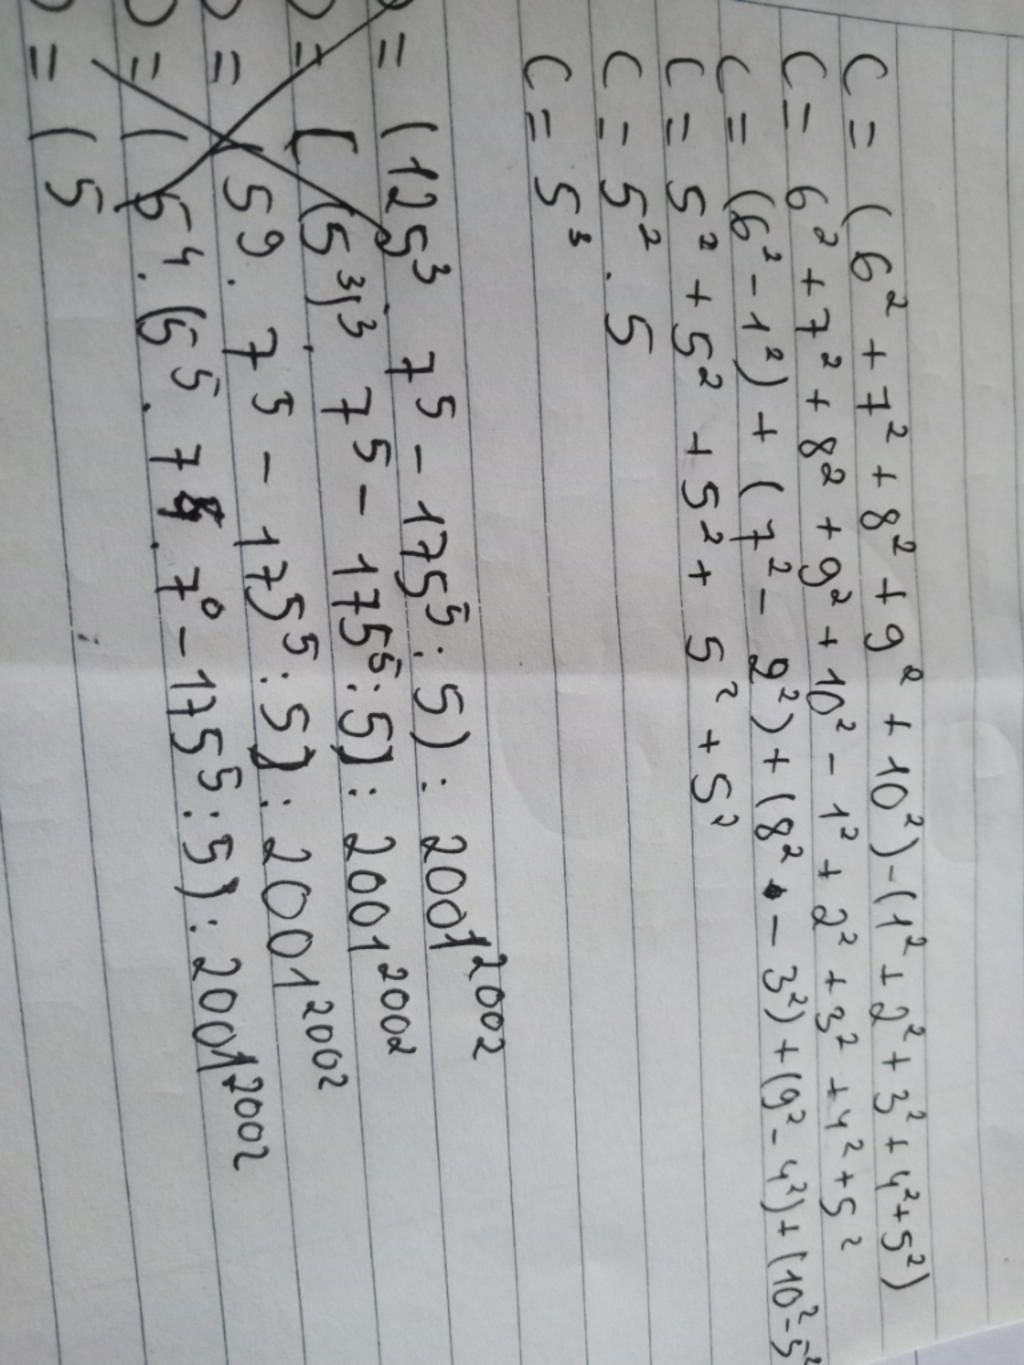 C = (6² + 7² + 8² + 9² + 10²) - (1² + 2² + 3² + 4² + 5²)
C = 6² + 7² + 8² + 9² + 10² - 1² + 2² + 3² + 4² + 5²
C = (6² - 1²) + (7² - 2²) + (8² - 3²) + (9² - 4²) + (10² - 5²
C = 5² + 5² + 5² + 5² + 5²
C = 5² . 5
C = 5³
= (125³ . 7⁵ - 175⁵ : 5) : 2001²⁰⁰²
= ((5³)³ . 7⁵ - 175⁵ : 5) : 2001²⁰⁰²
= (5⁹ . 7⁵ - 175⁵ : 5) : 2001²⁰⁰²
= (5⁴ . (5⁵ . 7⁵ . 7⁰ - 175⁵ : 5) : 2001²⁰⁰²
= (5